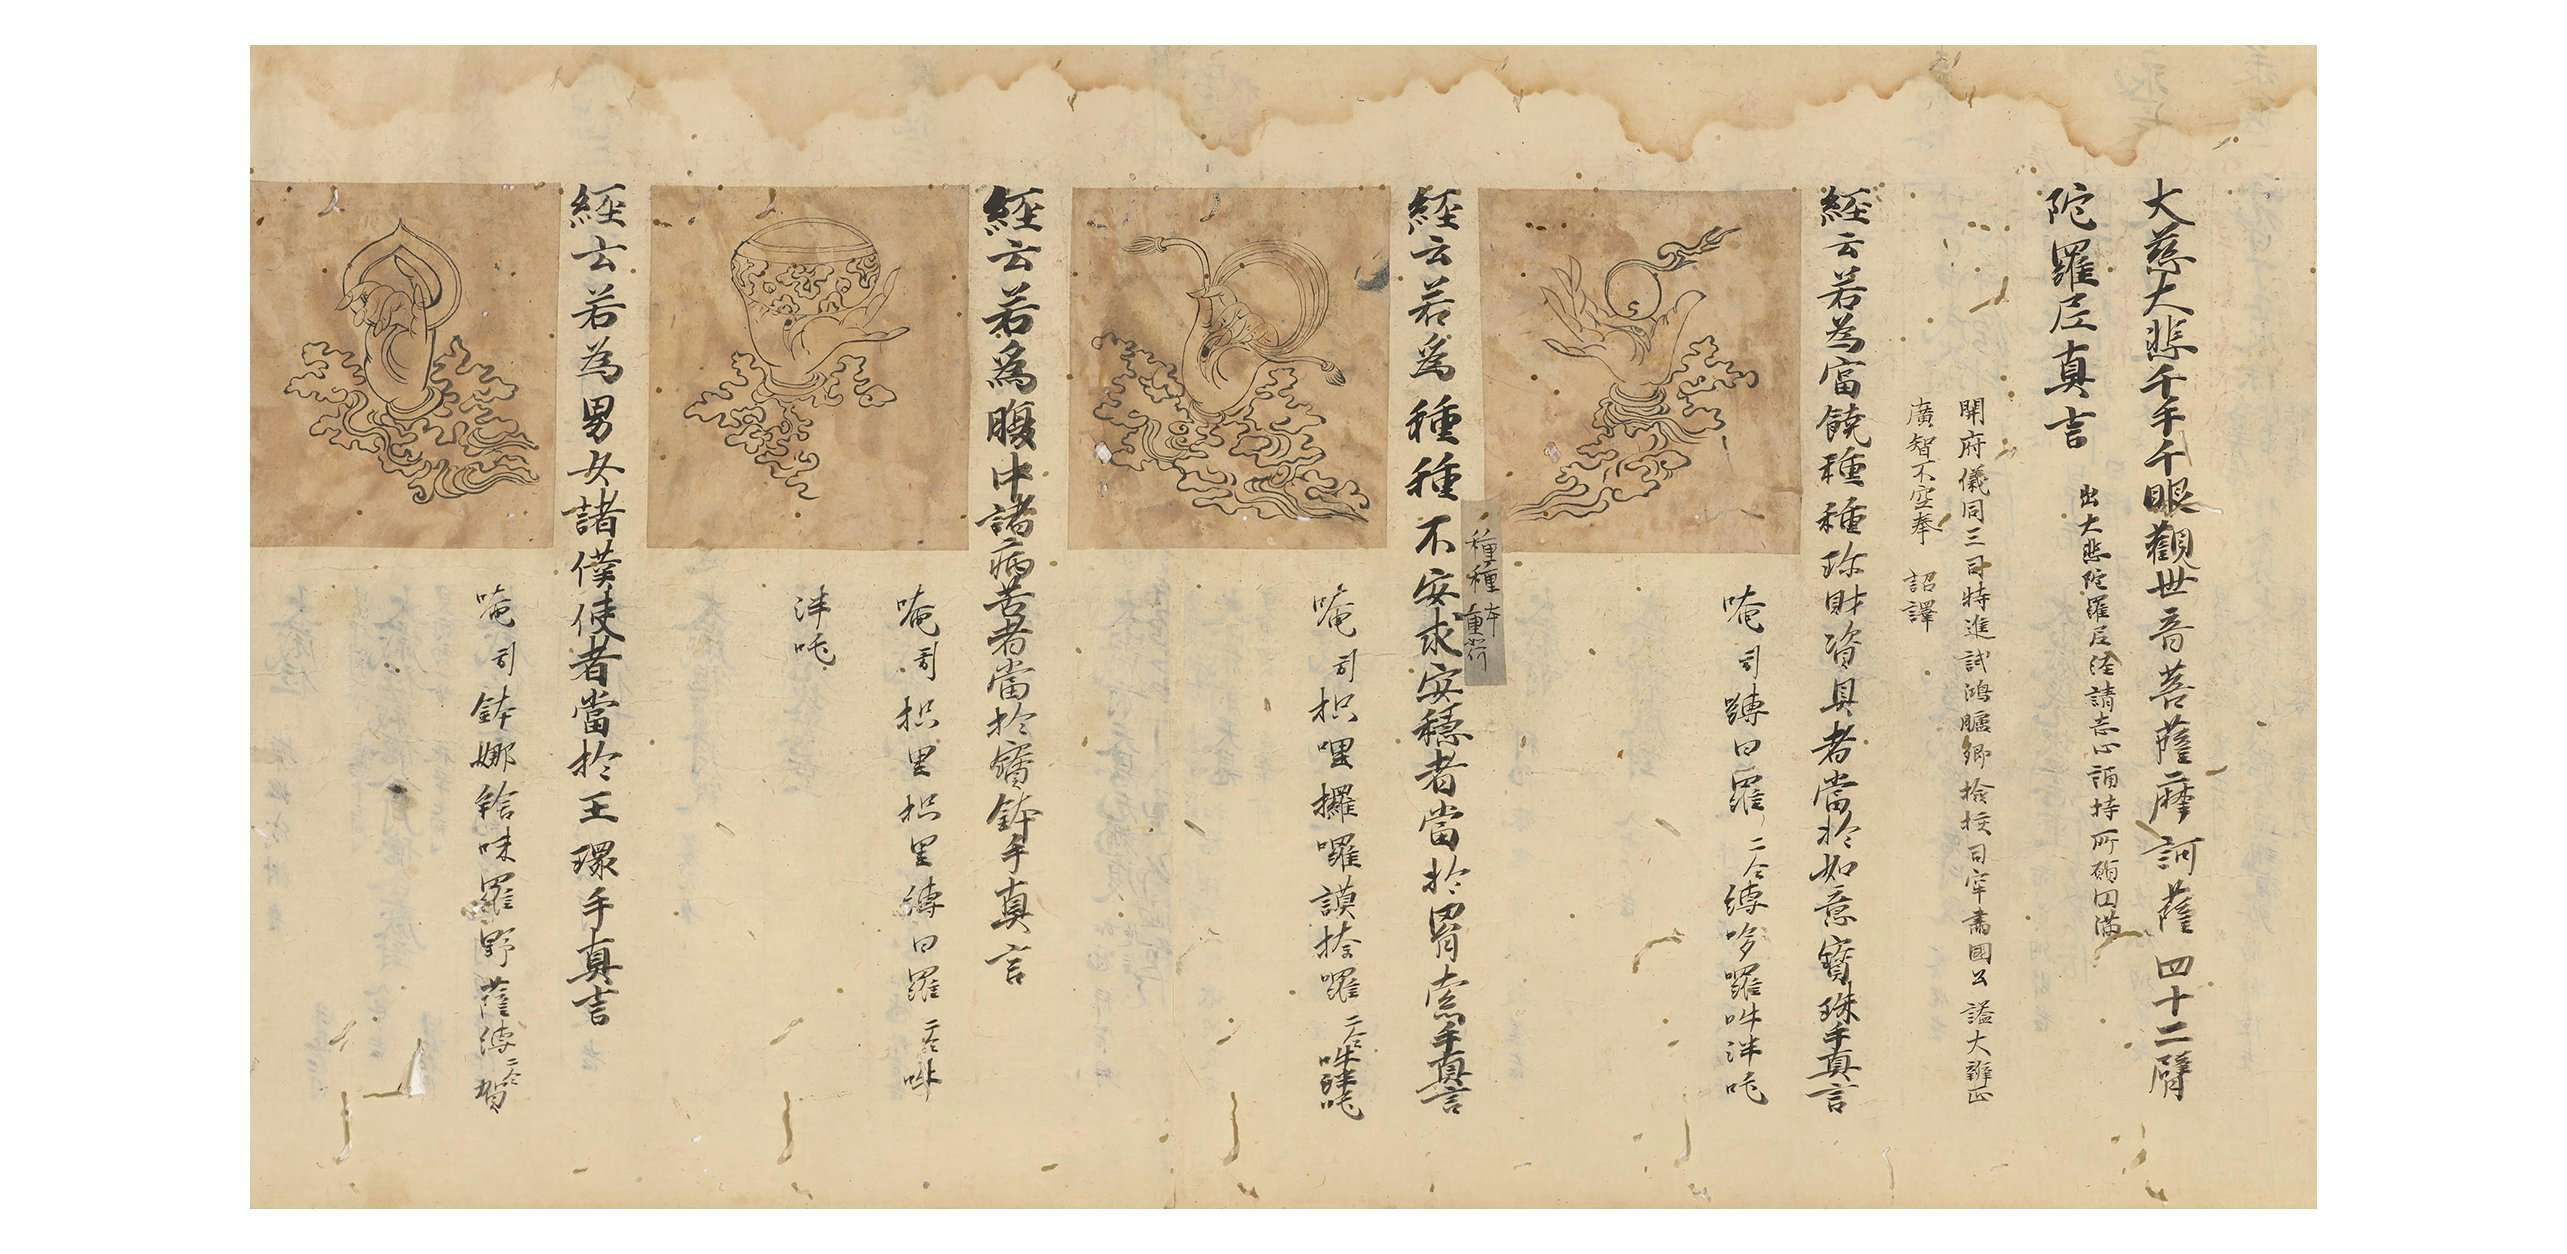 大慈大悲千手千眼觀世音菩薩摩訶薩四十二臂
陀羅尼真言 出大悲陀羅尼経請志心誦持所願円満
開府儀同三司特進試鴻臚卿撿挍司空肅國公謚大辦正
廣智不空奉 詔譯
経云若為富饒種種珎財資具者當扵如意寳珠手真言
唵引 蹲曰羅二合縛哆囉吽泮吒
種種
経云若為種種不安求安穩者當扵羂索手真言
唵引 枳哩攞囉謨捺囉二合吽泮吒
経云若為腹中諸病苦者當扵寳鉢手真言
唵引 枳里枳里縛曰羅二合吽
泮吒
経云若為男女諸僕使者當扵玉環手真言
唵引 鉢娜𤚥味羅野薩縛二合賀